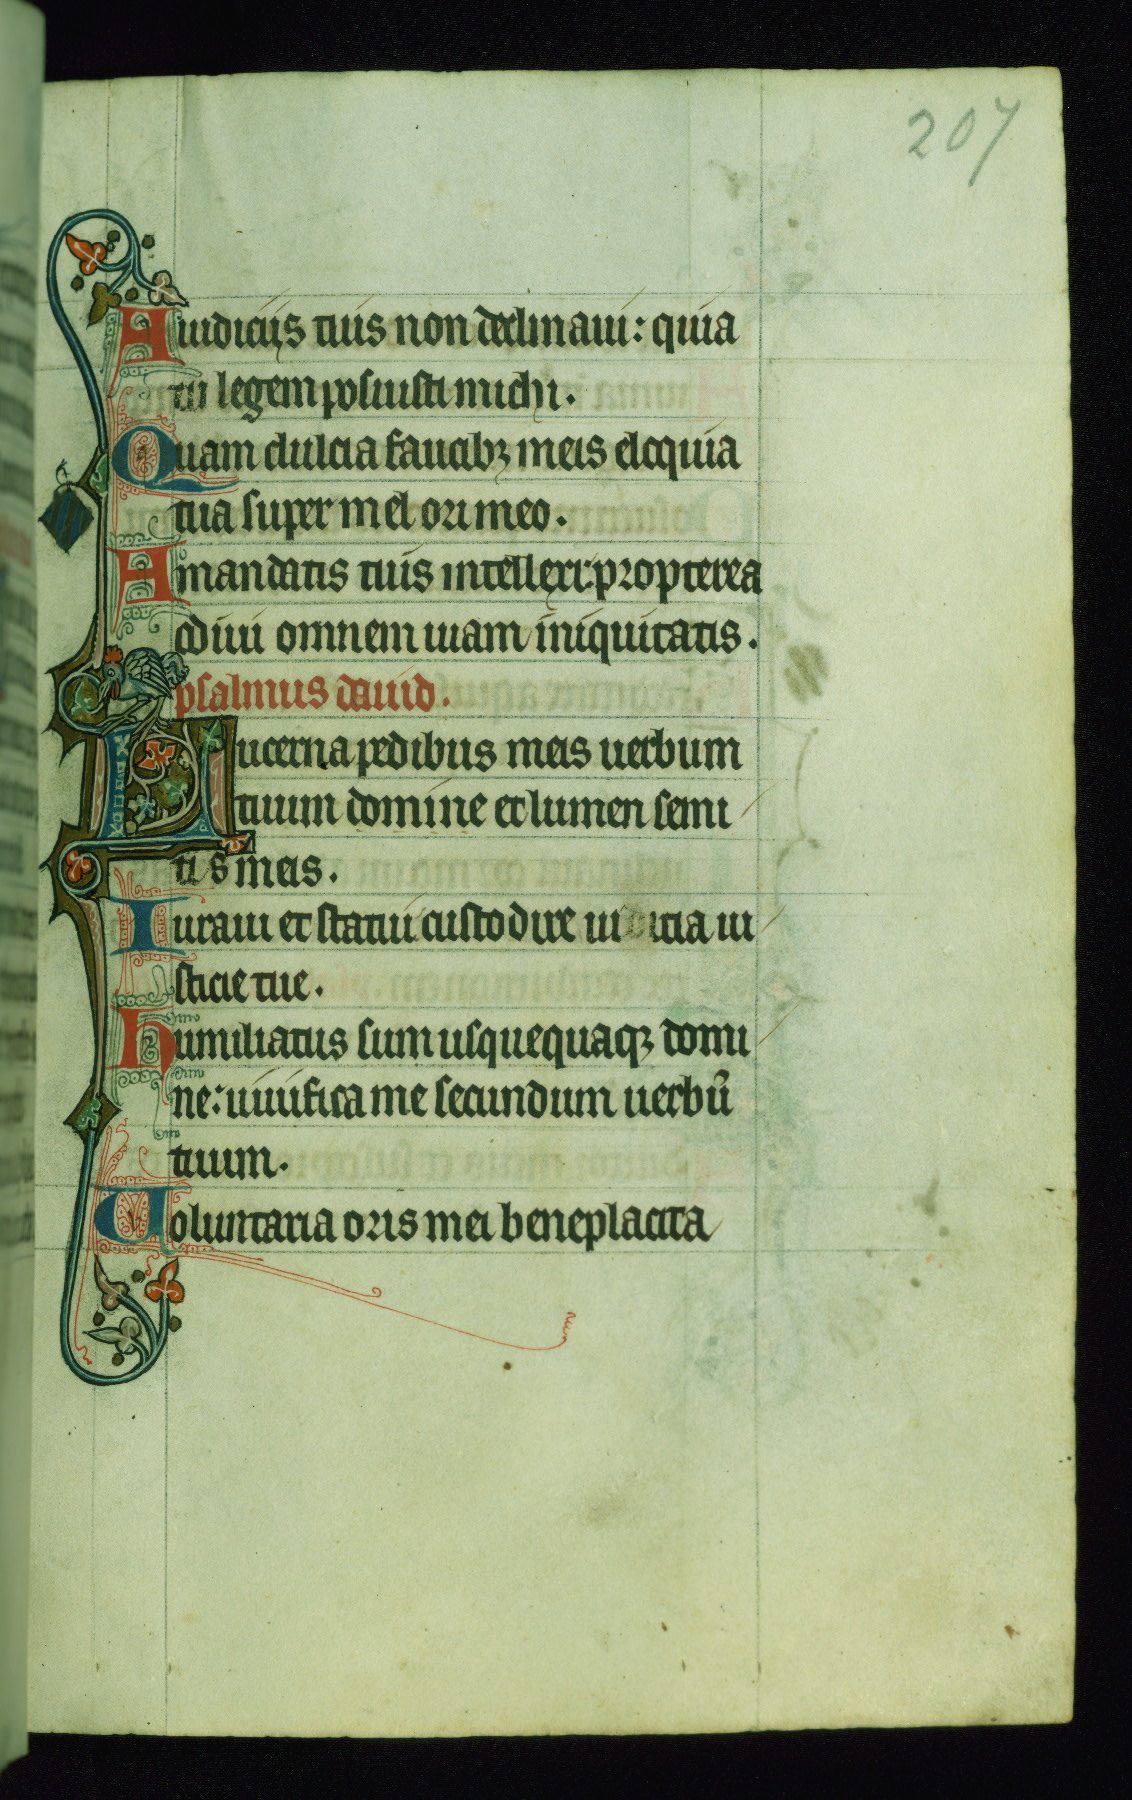 207
A iudiciis tuis non declinaui: quia
tu legem posuisti michi.
Quam dulcia faucibꝫ meis eloquia
tua super mel ori meo.
A mandatis tuis intellexi: propterea
odiui omnem uiam iniquitatis.
psalmus dauid.
Lucerna pedibus meis uerbum
tuum domine et lumen semi
tis meis.
Iuraui et statui custodire iudicia iu
sticie tue.
Humiliatus sum usquequaqꝫ domi
ne: uiuifica me secundum uerbū
tuum.
Uoluntaria oris mei beneplacita